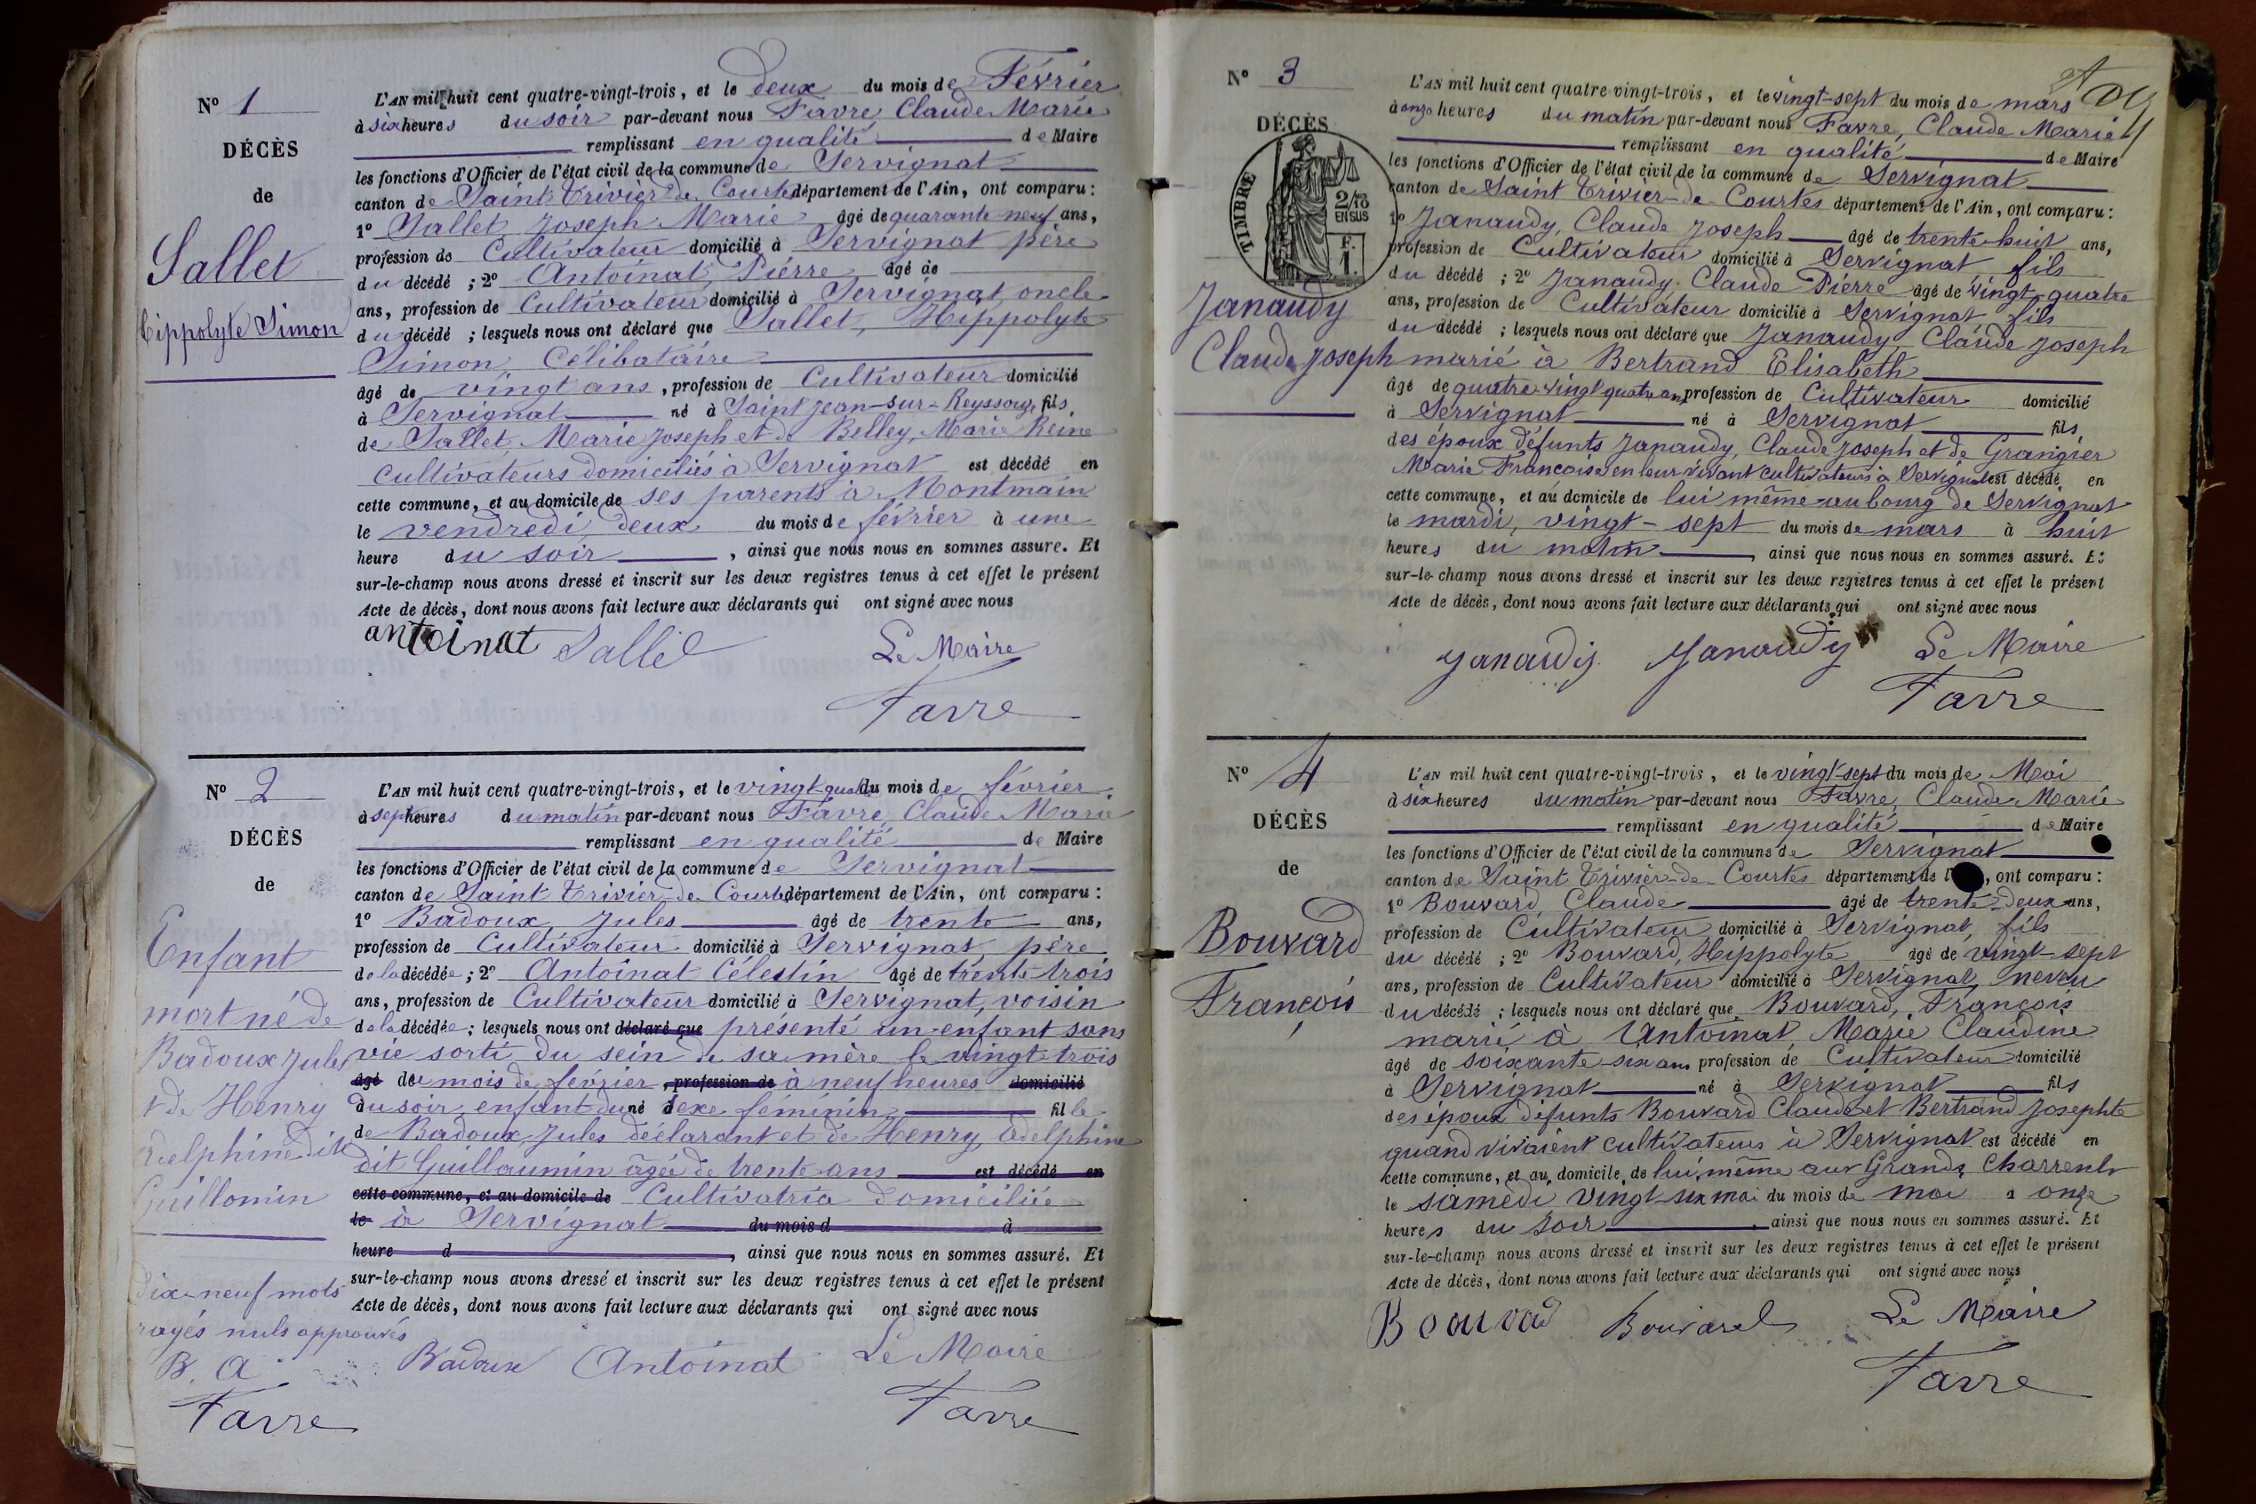 N° 1
DÉCÈS
de
Sallet
Hippolyte Simon
L'AN mil huit cent quatre-vingt-trois, et le deux du mois de Février
à six heures du soir par-devant nous Favre, Claude Marie
remplissant en qualité de Maire
les fonctions d'Officier de l'état civil de la commune de Servignat
canton de Saint Trivier de Courtes département de l'Ain, ont comparu :
1° Sallet, Joseph Marie âgé de quarante-neuf ans,
profession de Cultivateur domicilié à Servignat père
du décédé ; 2° Antoinat, Pierre âgé de
ans, profession de Cultivateur domicilié à Servignat, oncle
du décédé ; lesquels nous ont déclaré que Sallet, Hippolyte
Simon, Célibataire
âgé de vingt ans, profession de Cultivateur domicilié
à Servignat né à Saint Jean-sur-Reyssouze fils
de Sallet, Marie Joseph et de Belley, Marie Reine
cultivateurs domiciliés à Servignat est décédé en
cette commune, et au domicile de ses parents à Montmain
le vendredi, deux du mois de février à une
heure du soir, ainsi que nous nous en sommes assuré. Et
sur-le-champ nous avons dressé et inscrit sur les deux registres tenus à cet effet le présent
Acte de décès, dont nous avons fait lecture aux déclarants qui ont signé avec nous
antoinat Sallet Le Maire
Favre
N° 2
DÉCÈS
de
Enfant
mort né de
Badoux Jules
et de Henry
Adelphine dite
Guillomin
Dix-neuf mots
rayés nuls approuvés
B. A
Favre
L'AN mil huit cent quatre-vingt-trois, et le vingt-quatre du mois de février
à sept heures du matin par-devant nous Favre, Claude Marie
remplissant en qualité de Maire
les fonctions d'Officier de l'état civil de la commune de Servignat
canton de Saint Trivier de Courtes département de l'Ain, ont comparu :
1° Badoux, Jules âgé de trente ans,
profession de Cultivateur domicilié à Servignat, père
de la décédée ; 2° Antoinat Célestin âgé de trente trois
ans, profession de Cultivateur domicilié à Servignat, voisin
de la décédée ; lesquels nous ont déclaré que présenté un enfant sans
vie sorti du sein de sa mère le vingt-trois
âgé du mois de février, profession de à neuf heures domicilié
du soir, enfant du né sexe féminin fille
de Badoux Jules déclarant et de Henry, Adelphine
dit Guillaumin âgée de trente ans est décédé en
cette commune, et au domicile de Cultivatrice domiciliée
le à Servignat du mois d à
heure d , ainsi que nous nous en sommes assuré. Et
sur-le-champ nous avons dressé et inscrit sur les deux registres tenus à cet effet le présent
Acte de décès, dont nous avons fait lecture aux déclarants qui ont signé avec nous
Badoux Antoinat Le Maire
Favre
N° 3
DÉCÈS
TIMBRE
2/10
EN SUS
F.
1.
Janaudy
Claude Joseph
L'AN mil huit cent quatre-vingt-trois, et le vingt-sept du mois de mars
à onze heures du matin par-devant nous Favre, Claude Marie
remplissant en qualité de Maire
les fonctions d'Officier de l'état civil de la commune de Servignat
canton de Saint Trivier-de-Courtes département de l'Ain, ont comparu :
1° Janaudy, Claude Joseph âgé de trente-huit ans,
profession de Cultivateur domicilié à Servignat fils
du décédé ; 2° Janaudy Claude Pierre âgé de vingt-quatre
ans, profession de Cultivateur domicilié à Servignat fils
du décédé ; lesquels nous ont déclaré que Janaudy, Claude Joseph
marié à Bertrand Elisabeth
âgé de quatre vingt quatre ans profession de Cultivateur domicilié
à Servignat né à Servignat fils
des époux défunts Janaudy, Claude Joseph et de Grangier
Marie Françoise en leur vivant cultivateurs à Servignat est décédé en
cette commune, et au domicile de lui même au bourg de Servignat
le mardi, vingt-sept du mois de mars à huit
heures du matin, ainsi que nous nous en sommes assuré. Et
sur-le-champ nous avons dressé et inscrit sur les deux registres tenus à cet effet le présent
Acte de décès, dont nous avons fait lecture aux déclarants qui ont signé avec nous
Janaudy Janaudy Le Maire
Favre
N° 4
DÉCÈS
de
Bouvard
François
L'AN mil huit cent quatre-vingt-trois, et le vingt-sept du mois de Mai
à six heures du matin par-devant nous Favre, Claude Marie
remplissant en qualité de Maire
les fonctions d'Officier de l'état civil de la commune de Servignat
canton de Saint Trivier-de-Courtes département de l' , ont comparu :
1° Bouvard, Claude âgé de trente-deux ans,
profession de Cultivateur domicilié à Servignat, fils
du décédé ; 2° Bouvard, Hippolyte âgé de vingt-sept
ans, profession de Cultivateur domicilié à Servignat, neveu
du décédé ; lesquels nous ont déclaré que Bouvard, François
marié à Antoinat, Marie Claudine
âgé de soixante-six ans profession de Cultivateur domicilié
à Servignat né à Servignat fils
des époux défunts Bouvard Claude et Bertrand Josephte
quand vivaient cultivateurs à Servignat est décédé en
cette commune, et au domicile de lui même aux Grands Charrents
le samedi vingt-six mai du mois de mai à onze
heures du soir, ainsi que nous nous en sommes assuré. Et
sur-le-champ nous avons dressé et inscrit sur les deux registres tenus à cet effet le présent
Acte de décès, dont nous avons fait lecture aux déclarants qui ont signé avec nous
Bouvard Le Maire
Favre